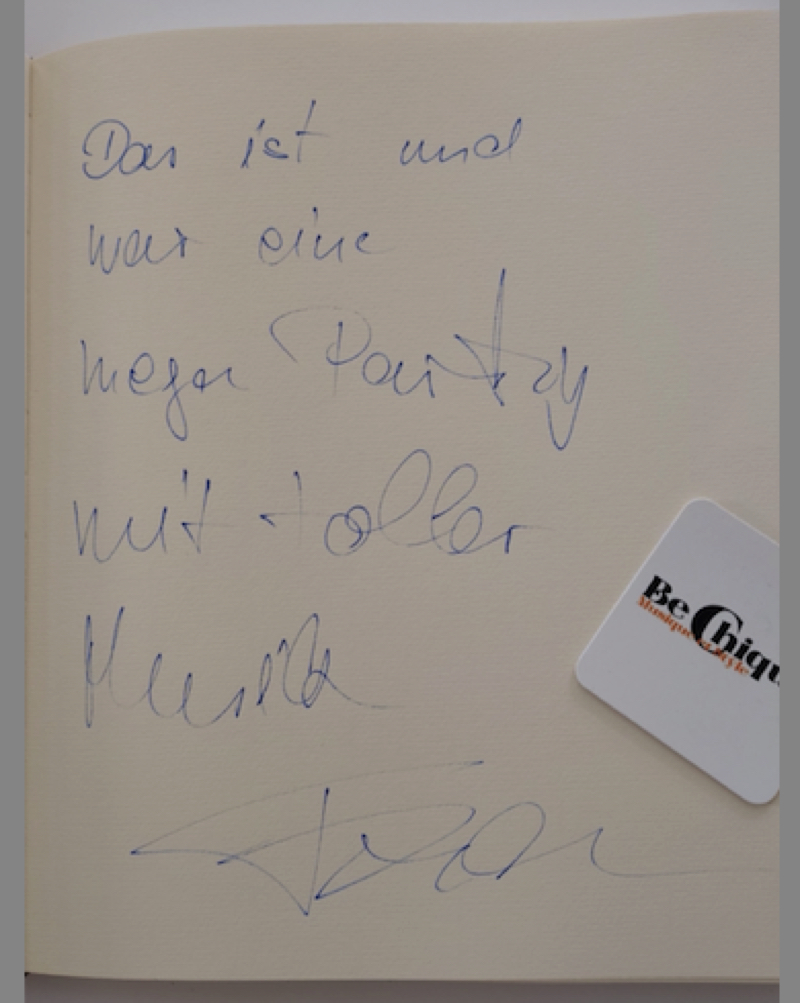 Das ist und
war eine
mega Party
mit toller
Musik
Be Chiqu
Musique
Style